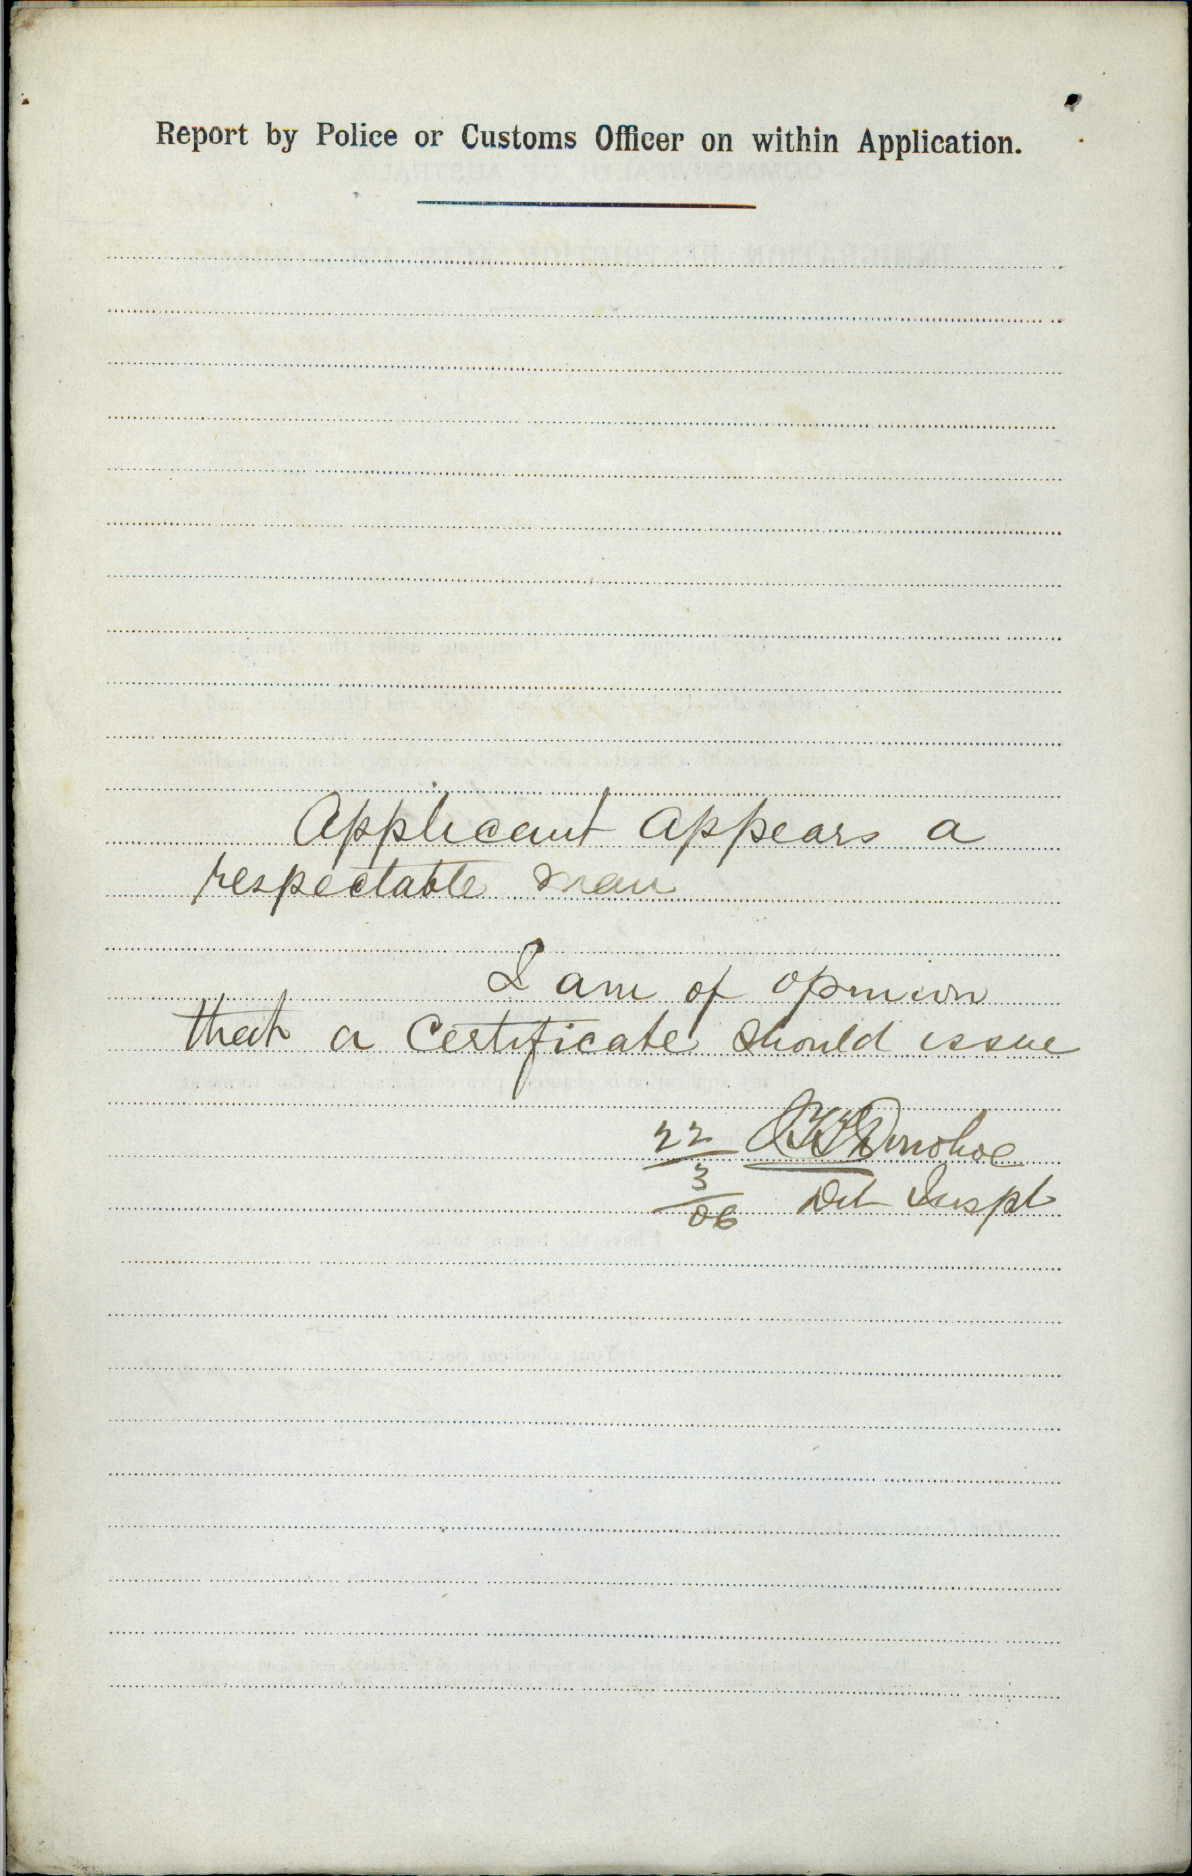 Report by Police or Customs Officer on within Application.
Applicant appears a
respectable man
I am of opinion
that a Certificate should issue
22 Donohoe
3
06 Det Inspt